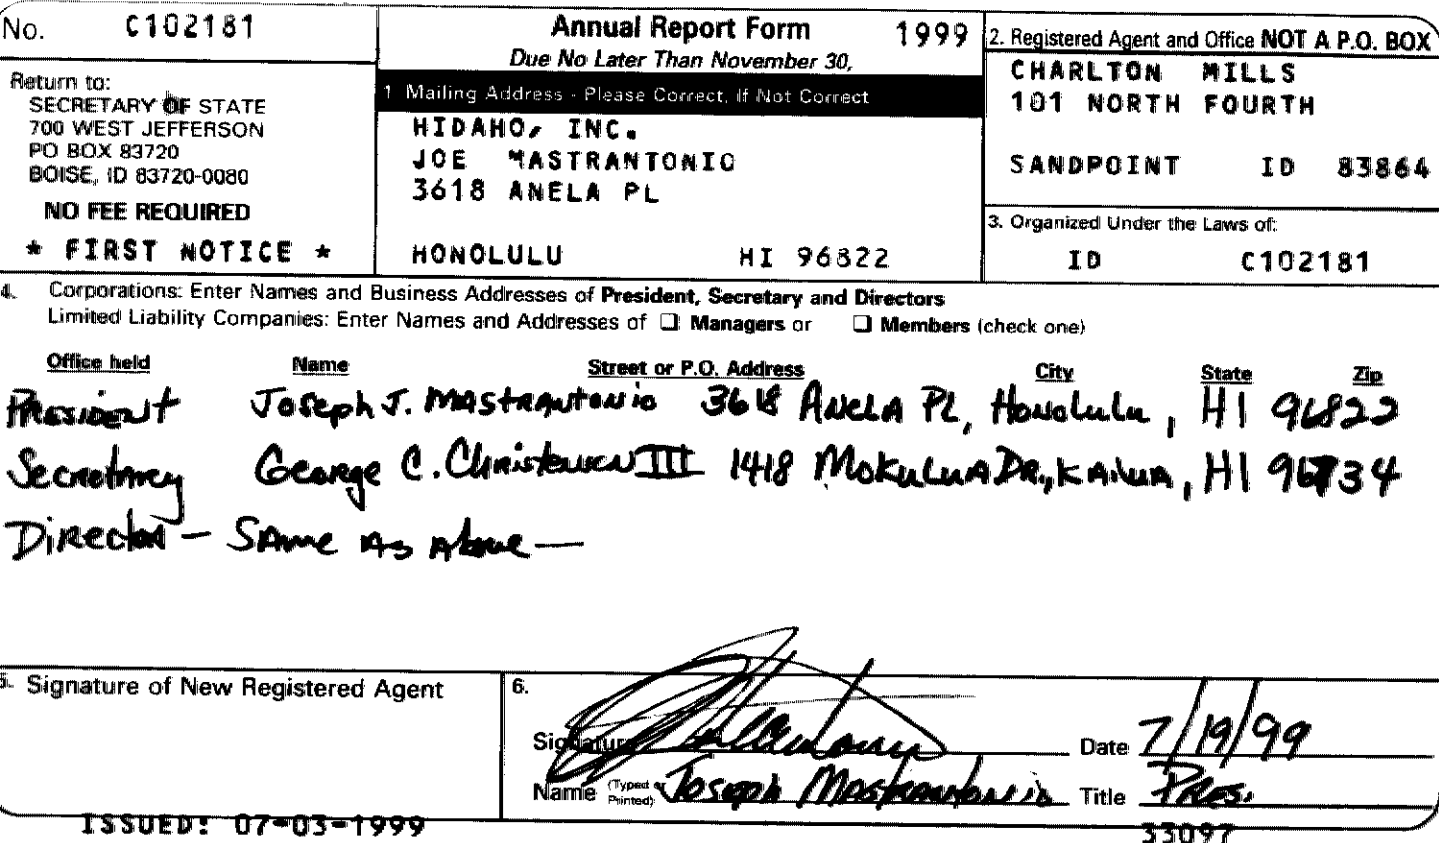 No. C102181
Annual Report Form 1999
Due No Later Than November 30,
Return to:
SECRETARY OF STATE
700 WEST JEFFERSON
PO BOX 83720
BOISE, ID 83720-0080
NO FEE REQUIRED
* FIRST NOTICE *
1 Mailing Address - Please Correct, If Not Correct
HIDAHO, INC.
JOE MASTRANTONIO
3618 ANELA PL
HONOLULU HI 96822
2. Registered Agent and Office NOT A P.O. BOX
CHARLTON MILLS
101 NORTH FOURTH
SANDPOINT ID 83864
3. Organized Under the Laws of:
ID C102181
4. Corporations: Enter Names and Business Addresses of President, Secretary and Directors
Limited Liability Companies: Enter Names and Addresses of ☐ Managers or ☐ Members (check one)
Office held Name Street or P.O. Address City State Zip
President Joseph J. Mastrantonio 3618 Anela PL, Honolulu, HI 96822
Secretary George C. Christensen III 1418 Mokulua Dr., Kailua, HI 96734
Director - Same As Above —
5. Signature of New Registered Agent
6.
Signature Date 7/19/99
Name (Typed or Printed) Joseph Mastrantonio Title Pres.
ISSUED: 07-03-1999
33097